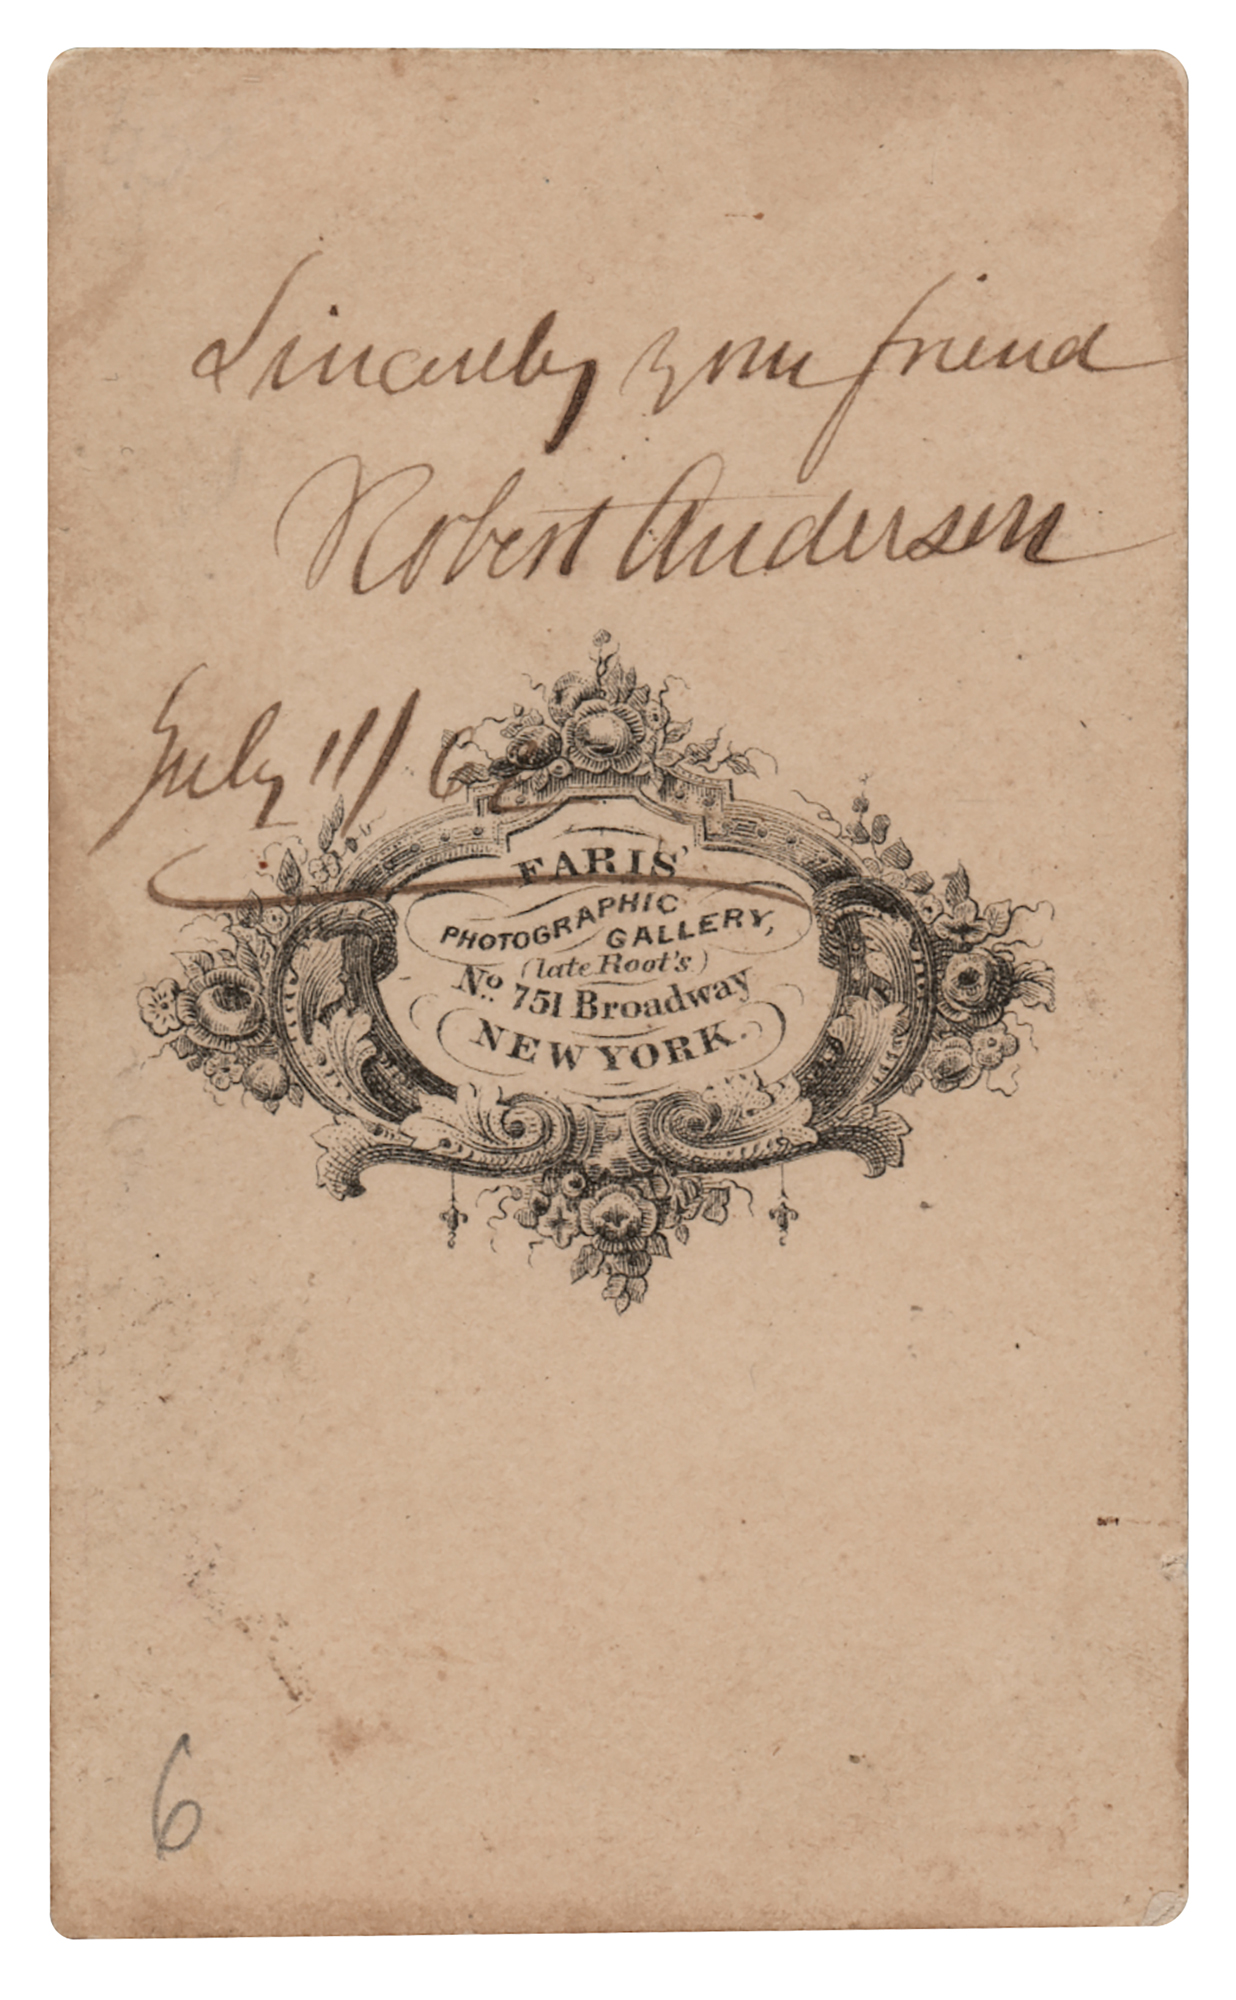 Sincerely your friend
Robert Anderson
July 11/62
FARIS'
PHOTOGRAPHIC
GALLERY,
(late Root's)
No. 751 Broadway
NEW YORK.
6